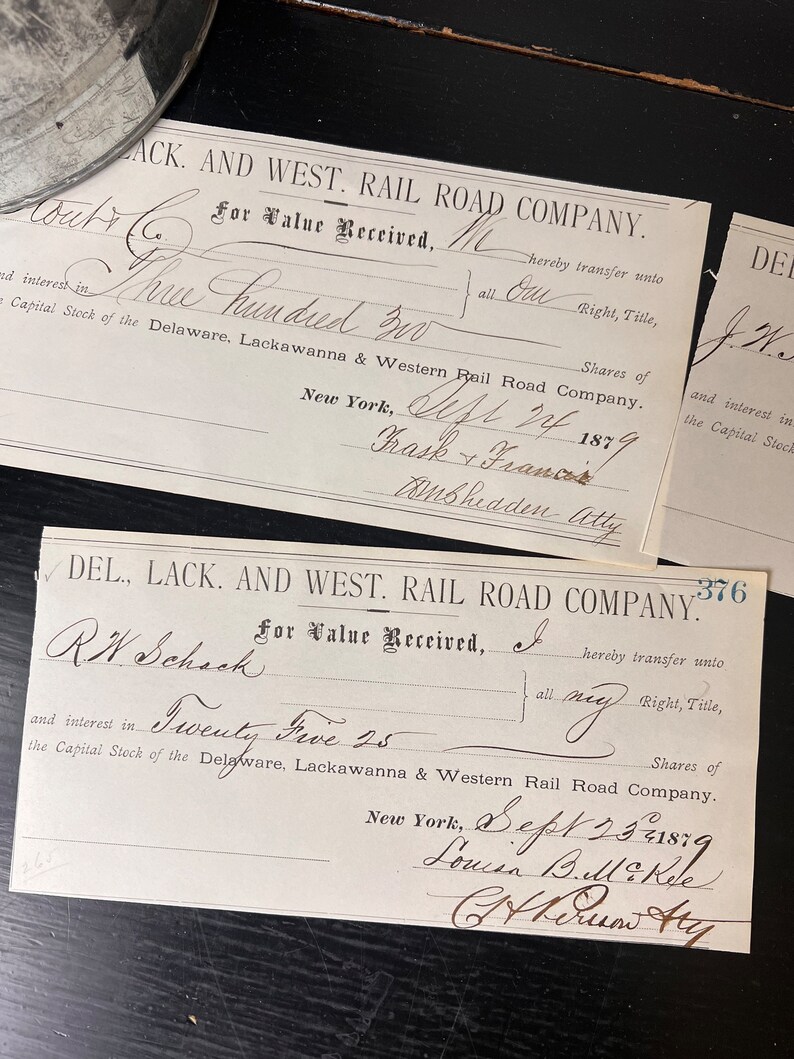 LACK. AND WEST. RAIL ROAD COMPANY.
For Value Received, We hereby transfer unto
& Co
} all Our Right, Title,
and interest in Three hundred 300 Shares of
the Capital Stock of the Delaware, Lackawanna & Western Rail Road Company.
New York, Sept 24 1879
Trask & Francis
Atty
DEL
J. W.
and interest in
the Capital Stock
376
DEL., LACK. AND WEST. RAIL ROAD COMPANY.
For Value Received, I hereby transfer unto
R W. Schack
} all my Right, Title,
and interest in Twenty Five 25 Shares of
the Capital Stock of the Delaware, Lackawanna & Western Rail Road Company.
New York, Sept 23d 1879
Louisa B. McKee
Atty
265